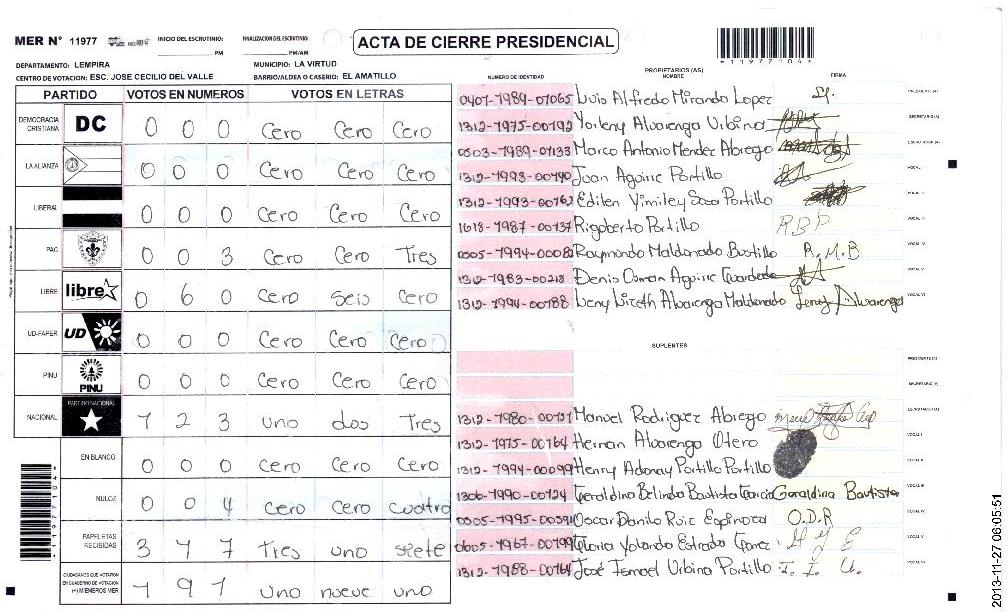 MER N° 11977 INICIO DEL ESCRUTINIO: PM FINALIZACION DEL ESCRUTINIO: PM/AM
ACTA DE CIERRE PRESIDENCIAL
*1197710 4*
DEPARTAMENTO: LEMPIRA MUNICIPIO: LA VIRTUD
CENTRO DE VOTACION: ESC. JOSE CECILIO DEL VALLE BARRIO/ALDEA O CASERIO: EL AMATILLO
PARTIDO VOTOS EN NUMEROS VOTOS EN LETRAS
DEMOCRACIA CRISTIANA DC 0 0 0 Cero Cero Cero
LA ALIANZA 0 0 0 Cero Cero Cero
LIBERAL 0 0 0 Cero Cero Cero
PAC 0 0 3 Cero Cero Tres
LIBRE libre 0 6 0 Cero seis Cero
UD-FAPER UD 0 0 0 Cero Cero Cero
PINU PINU 0 0 0 Cero Cero Cero
NACIONAL PARTIDO NACIONAL 1 2 3 uno dos Tres
EN BLANCO 0 0 0 Cero Cero Cero
NULOS 0 0 4 Cero Cero cuatro
PAPELETAS RECIBIDAS 3 1 7 Tres uno siete
CIUDADANOS QUE VOTARON EN CUADERNO DE VOTACION (+) MIEMBROS MER 1 9 1 uno nueve uno
NUMERO DE IDENTIDAD PROPIETARIOS (AS) NOMBRE FIRMA
0401-1984-01065 Luis Alfredo Mirando Lopez PRESIDENTE (A)
1312-1975-00192 Yorleny Alvarenga Urbina SECRETARIO (A)
0503-1989-01133 Marco Antonio Mendez Abrego ESCRUTADOR (A)
1312-1993-00190 Juan Aguirre Portillo VOCAL I
1312-1993-00162 Edilen Yimiley Sosa Portillo VOCAL II
1618-1987-00137 Rigoberto Portillo R.B.P VOCAL III
0505-1994-00082 Raymundo Maldonado Bustillo R.M.B VOCAL IV
1312-1983-00218 Denis Osman Aguirre VOCAL V
1312-1994-00188 Leny Liceth Alvarenga Maldonado Leny Alvarenga VOCAL VI
SUPLENTES
PRESIDENTE (A)
SECRETARIO (A)
1312-1980-00131 Manuel Rodriguez Abrego ESCRUTADOR (A)
1312-1975-00164 Hernan Alvarenga Otero VOCAL I
1312-1994-00099 Henry Adonay Portillo Portillo VOCAL II
1306-1990-00124 Geraldina Belinda Bautista Garcia Geraldina Bautista VOCAL III
0505-1995-00591 Oscar Danilo Ruiz Espinoza O.D.R VOCAL IV
0605-1967-00199 Gloria Yolando Estrada VOCAL V
1312-1988-00164 José Ismael Urbina Portillo J. I. U. VOCAL VI
*11977104*
2013-11-27 06:05:51